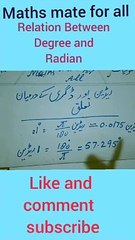 Maths mate for all
Relation Between
Degree and
Radian
ریڈین اور ڈگری کے درمیان
تعلق
1° = π/180 = 0.0175 ریڈین
1 ریڈین = 180/π = 57.295°
Like and
comment
subscribe